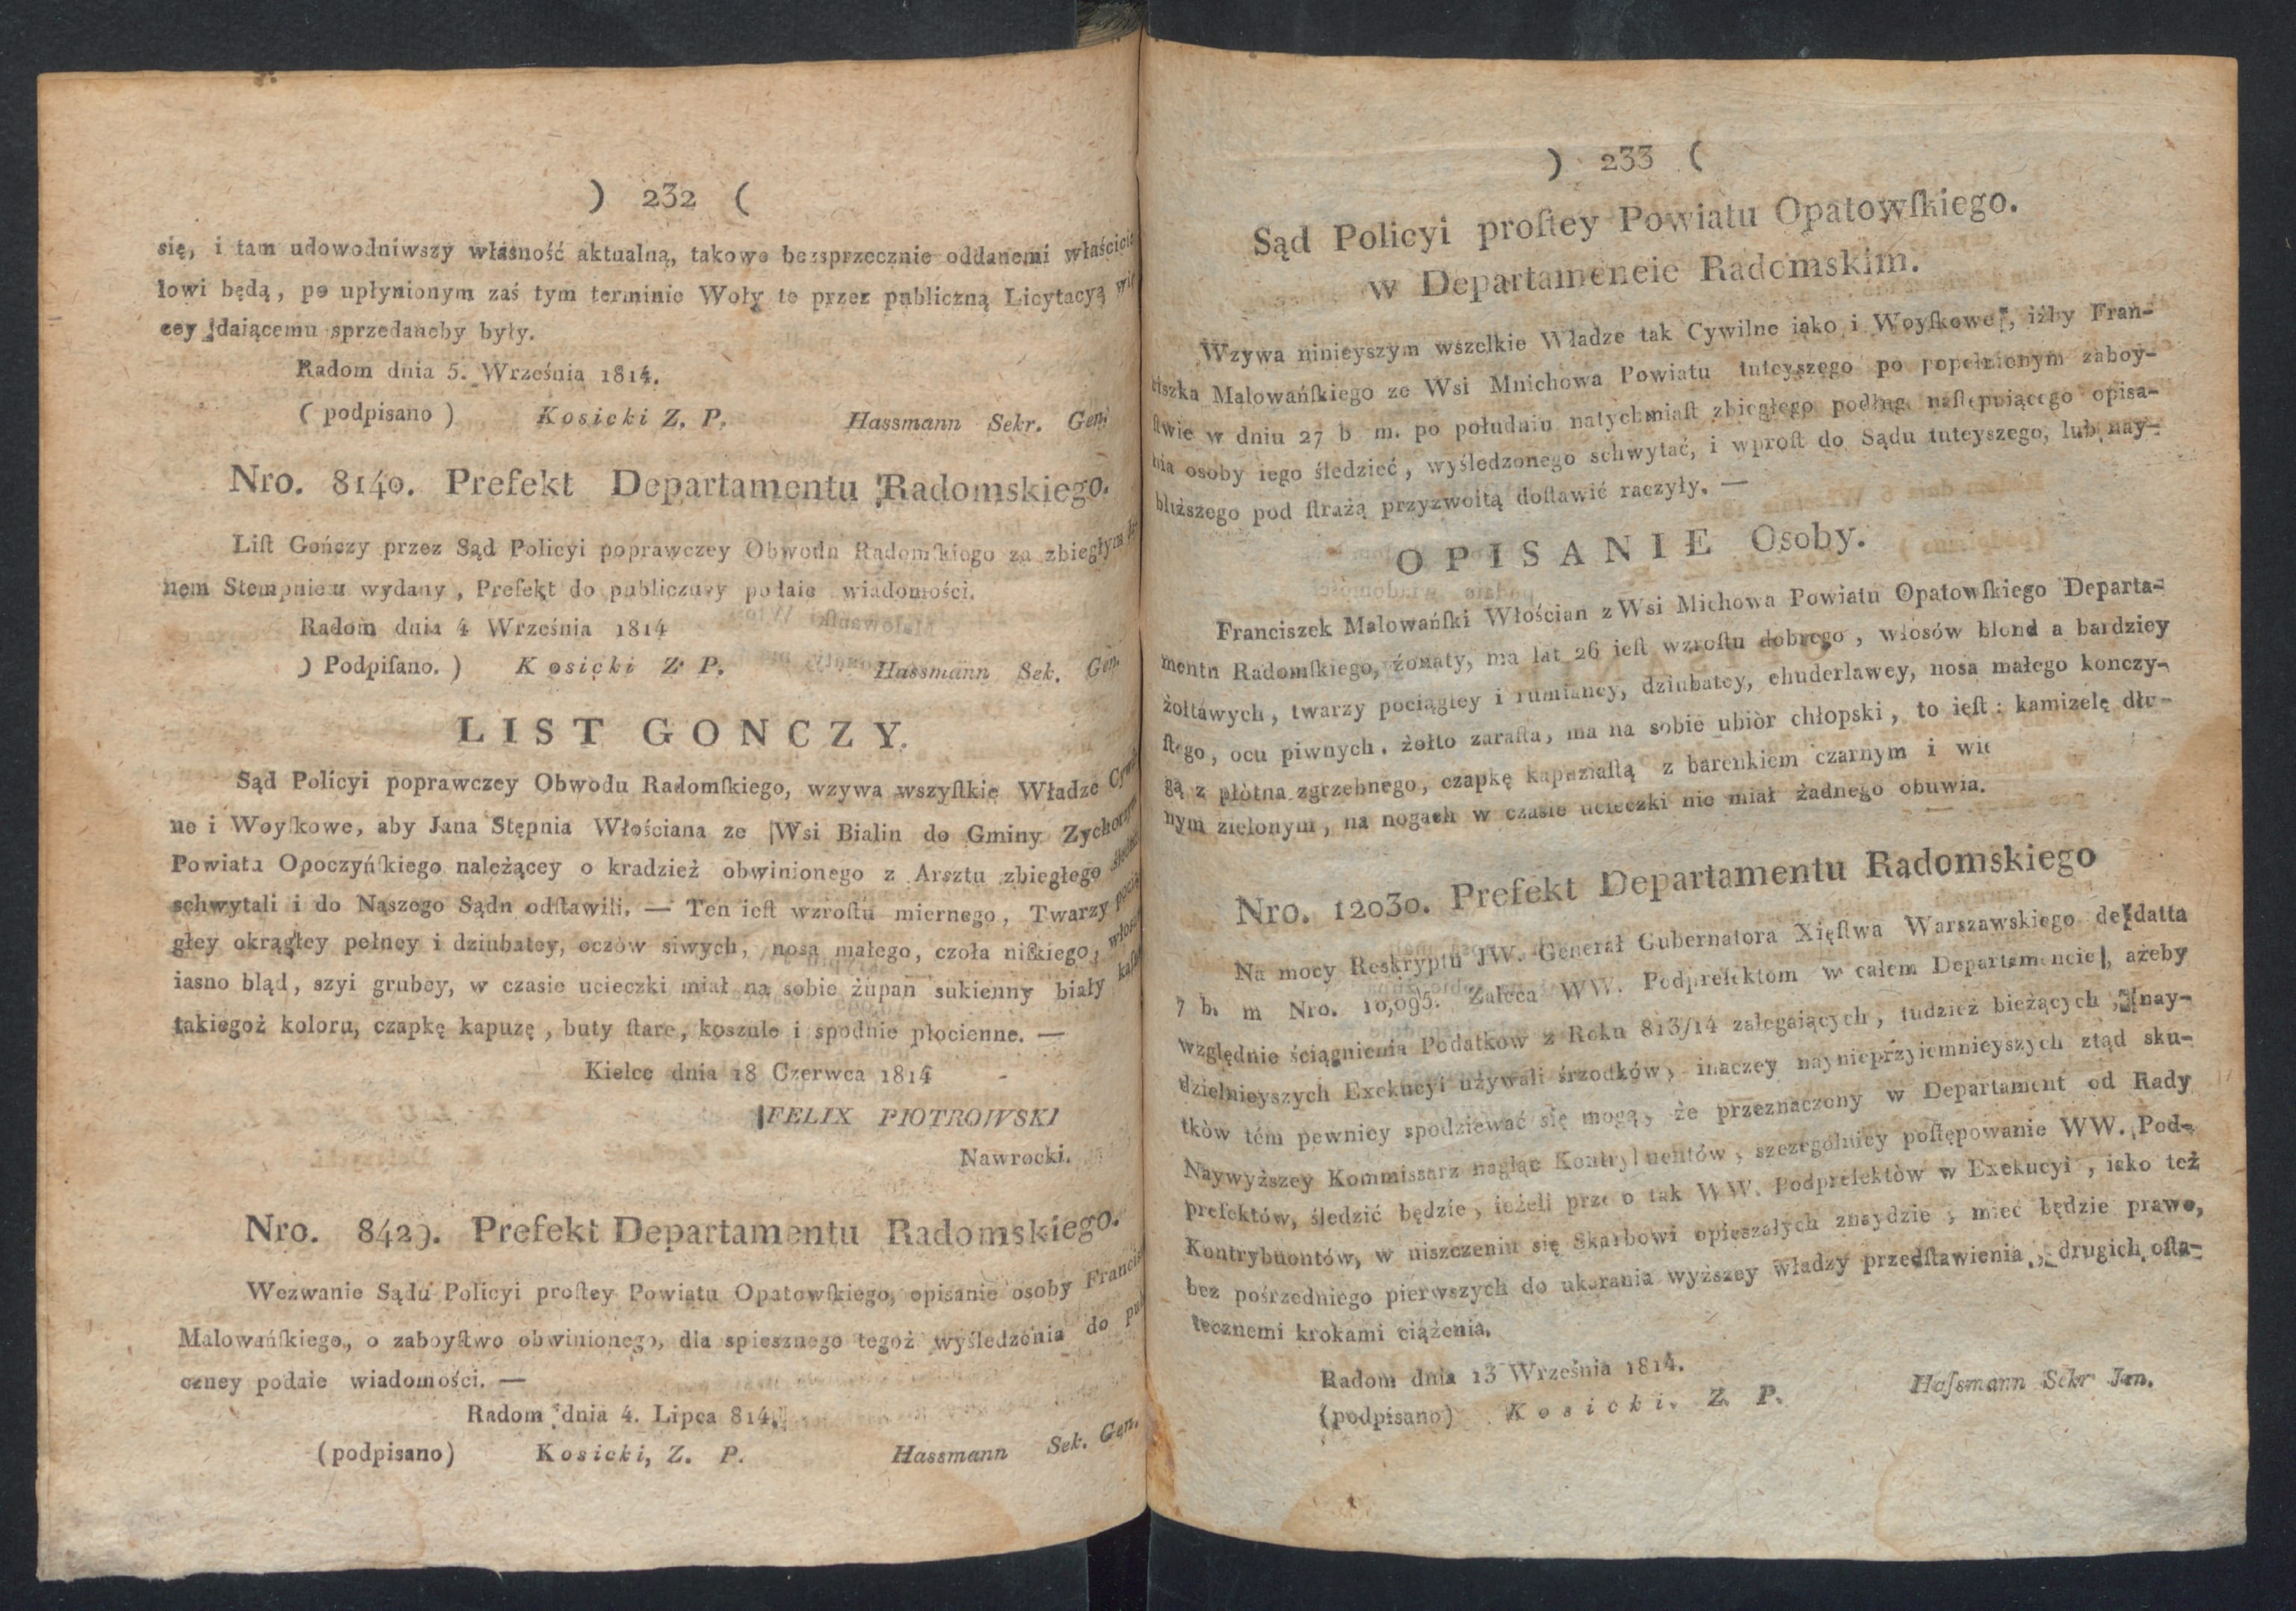 ) 232 (
się, i tam udowodniwszy własność aktualną, takowe bezsprzecznie oddanemi właścicie
lowi będą, po upłynionym zaś tym terminie Woły te przez publiczną Licytacyą wię
cey daiącemu sprzedaneby były.
Radom dnia 5. Września 1814.
( podpisano ) Kosicki Z. P. Hassmann Sekr. Gen.
Nro. 8140. Prefekt Departamentu Radomskiego.
Liſt Gończy przez Sąd Policyi poprawczey Obwodu Radomſkiego za zbiegłym
nem Stempniem wydany, Prefekt do publiczney podaie wiadomości.
Radom dnia 4 Września 1814
) Podpiſano. ) Kosicki Z P. Hassmann Sek. Gen.
LIST GONCZY.
Sąd Policyi poprawczey Obwodu Radomſkiego, wzywa wszyſtkie Władze Cywil
ne i Woyſkowe, aby Jana Stępnia Włościana ze Wsi Bialin do Gminy
Powiatu Opoczyńſkiego należącey o kradzież obwinionego z Arsztu zbiegłego śledzili
schwytali i do Naszego Sądu odſtawili. — Ten ieſt wzroſtu miernego, Twarzy pocią
głey okrągłey pełney i dziubatey, oczów siwych, nosa małego, czoła niſkiego, włosów
iasno bląd, szyi grubey, w czasie ucieczki miał na sobie żupan sukienny biały
takiegoż koloru, czapkę kapuzę, buty ſtare, koszule i spodnie płocienne. —
Kielce dnia 18 Czerwca 1814
FELIX PIOTROWSKI
Nawrocki.
Nro. 8429. Prefekt Departamentu Radomskiego.
Wezwanie Sądu Policyi proſtey Powiatu Opatowſkiego, opisanie osoby Francis
Malowańſkiego, o zaboyſtwo obwinionego, dla spiesznego tegoż wyśledzenia do pu
czney podaie wiadomości. —
Radom dnia 4. Lipca 814.
(podpisano) Kosicki, Z. P. Hassmann Sek. Gen.
) 233 (
Sąd Policyi proſtey Powiatu Opatowſkiego.
w Departameneie Radomskim.
Wzywa ninieyszym wszelkie Władze tak Cywilne iako i Woyſkowe, iżby Fran-
ciszka Malowańſkiego ze Wsi Mnichowa Powiatu tuteyszego po popełnionym zaboy-
ſtwie w dniu 27 b m. po południu natychmiaſt zbiegłego podług naſtępuiącego opisa-
nia osoby iego śledzieć, wyśledzonego schwytać, i wproſt do Sądu tuteyszego, lub nay-
bliższego pod ſtrażą przyzwoitą doſtawić raczyły. —
OPISANIE Osoby.
Franciszek Malowańſki Włościan z Wsi Michowa Powiatu Opatowſkiego Departa-
mentu Radomſkiego, żonaty, ma lat 26 ieſt wzroſtu dobrego, włosów blond a bardziey
żołtáwych, twarzy pociągłey i rumianey, dziubatey, chuderlawey, nosa małego konczy-
ſtego, ocu piwnych, żołto zaraſta, ma na sobie ubiòr chłopski, to ieſt: kamizelę dłu-
gą z płòtna zgrzebnego, czapkę kapuziaſtą z barenkiem czarnym i
nym zielonym, na nogach w czasie ucieczki nie miał żadnego obuwia.
Nro. 12030. Prefekt Departamentu Radomskiego
Na mocy Reskryptu JW. Generał Gubernatora Xięſtwa Warszawskiego de datta
7 b. m Nro. 10,095. Zaleca WW. Podprefektom w całem Departamencie, ażeby
względnie ściągnienia Podatkow z Roku 813/14 zalegaiących, tudzież bieżących, nay-
dzielnieyszych Exekucyi używali śrzodków, inaczey naynieprzyiemnieyszych ztąd sku-
tków tém pewniey spodziewać się mogą, że przeznaczony w Departament od Rady
Naywyższey Kommissarz nagląc Kontrybuentów, szczególniey poſtępowanie WW. Pod-
prefektów, śledzić będzie, ieżeli przeto tak WW. Podprefektòw w Exekucyi, iako też
Kontrybuontów, w uiszczeniu się Skarbowi opieszałych znaydzie, mieć będzie prawo,
bez pośrzedniego pierwszych do ukarania wyższey władzy przedſtawienia, drugich oſta-
tecznemi krokami ciążenia.
Radom dnia 13 Września 1814.
(podpisano) Kosicki. Z. P. Haſsmann Sekr Jen.